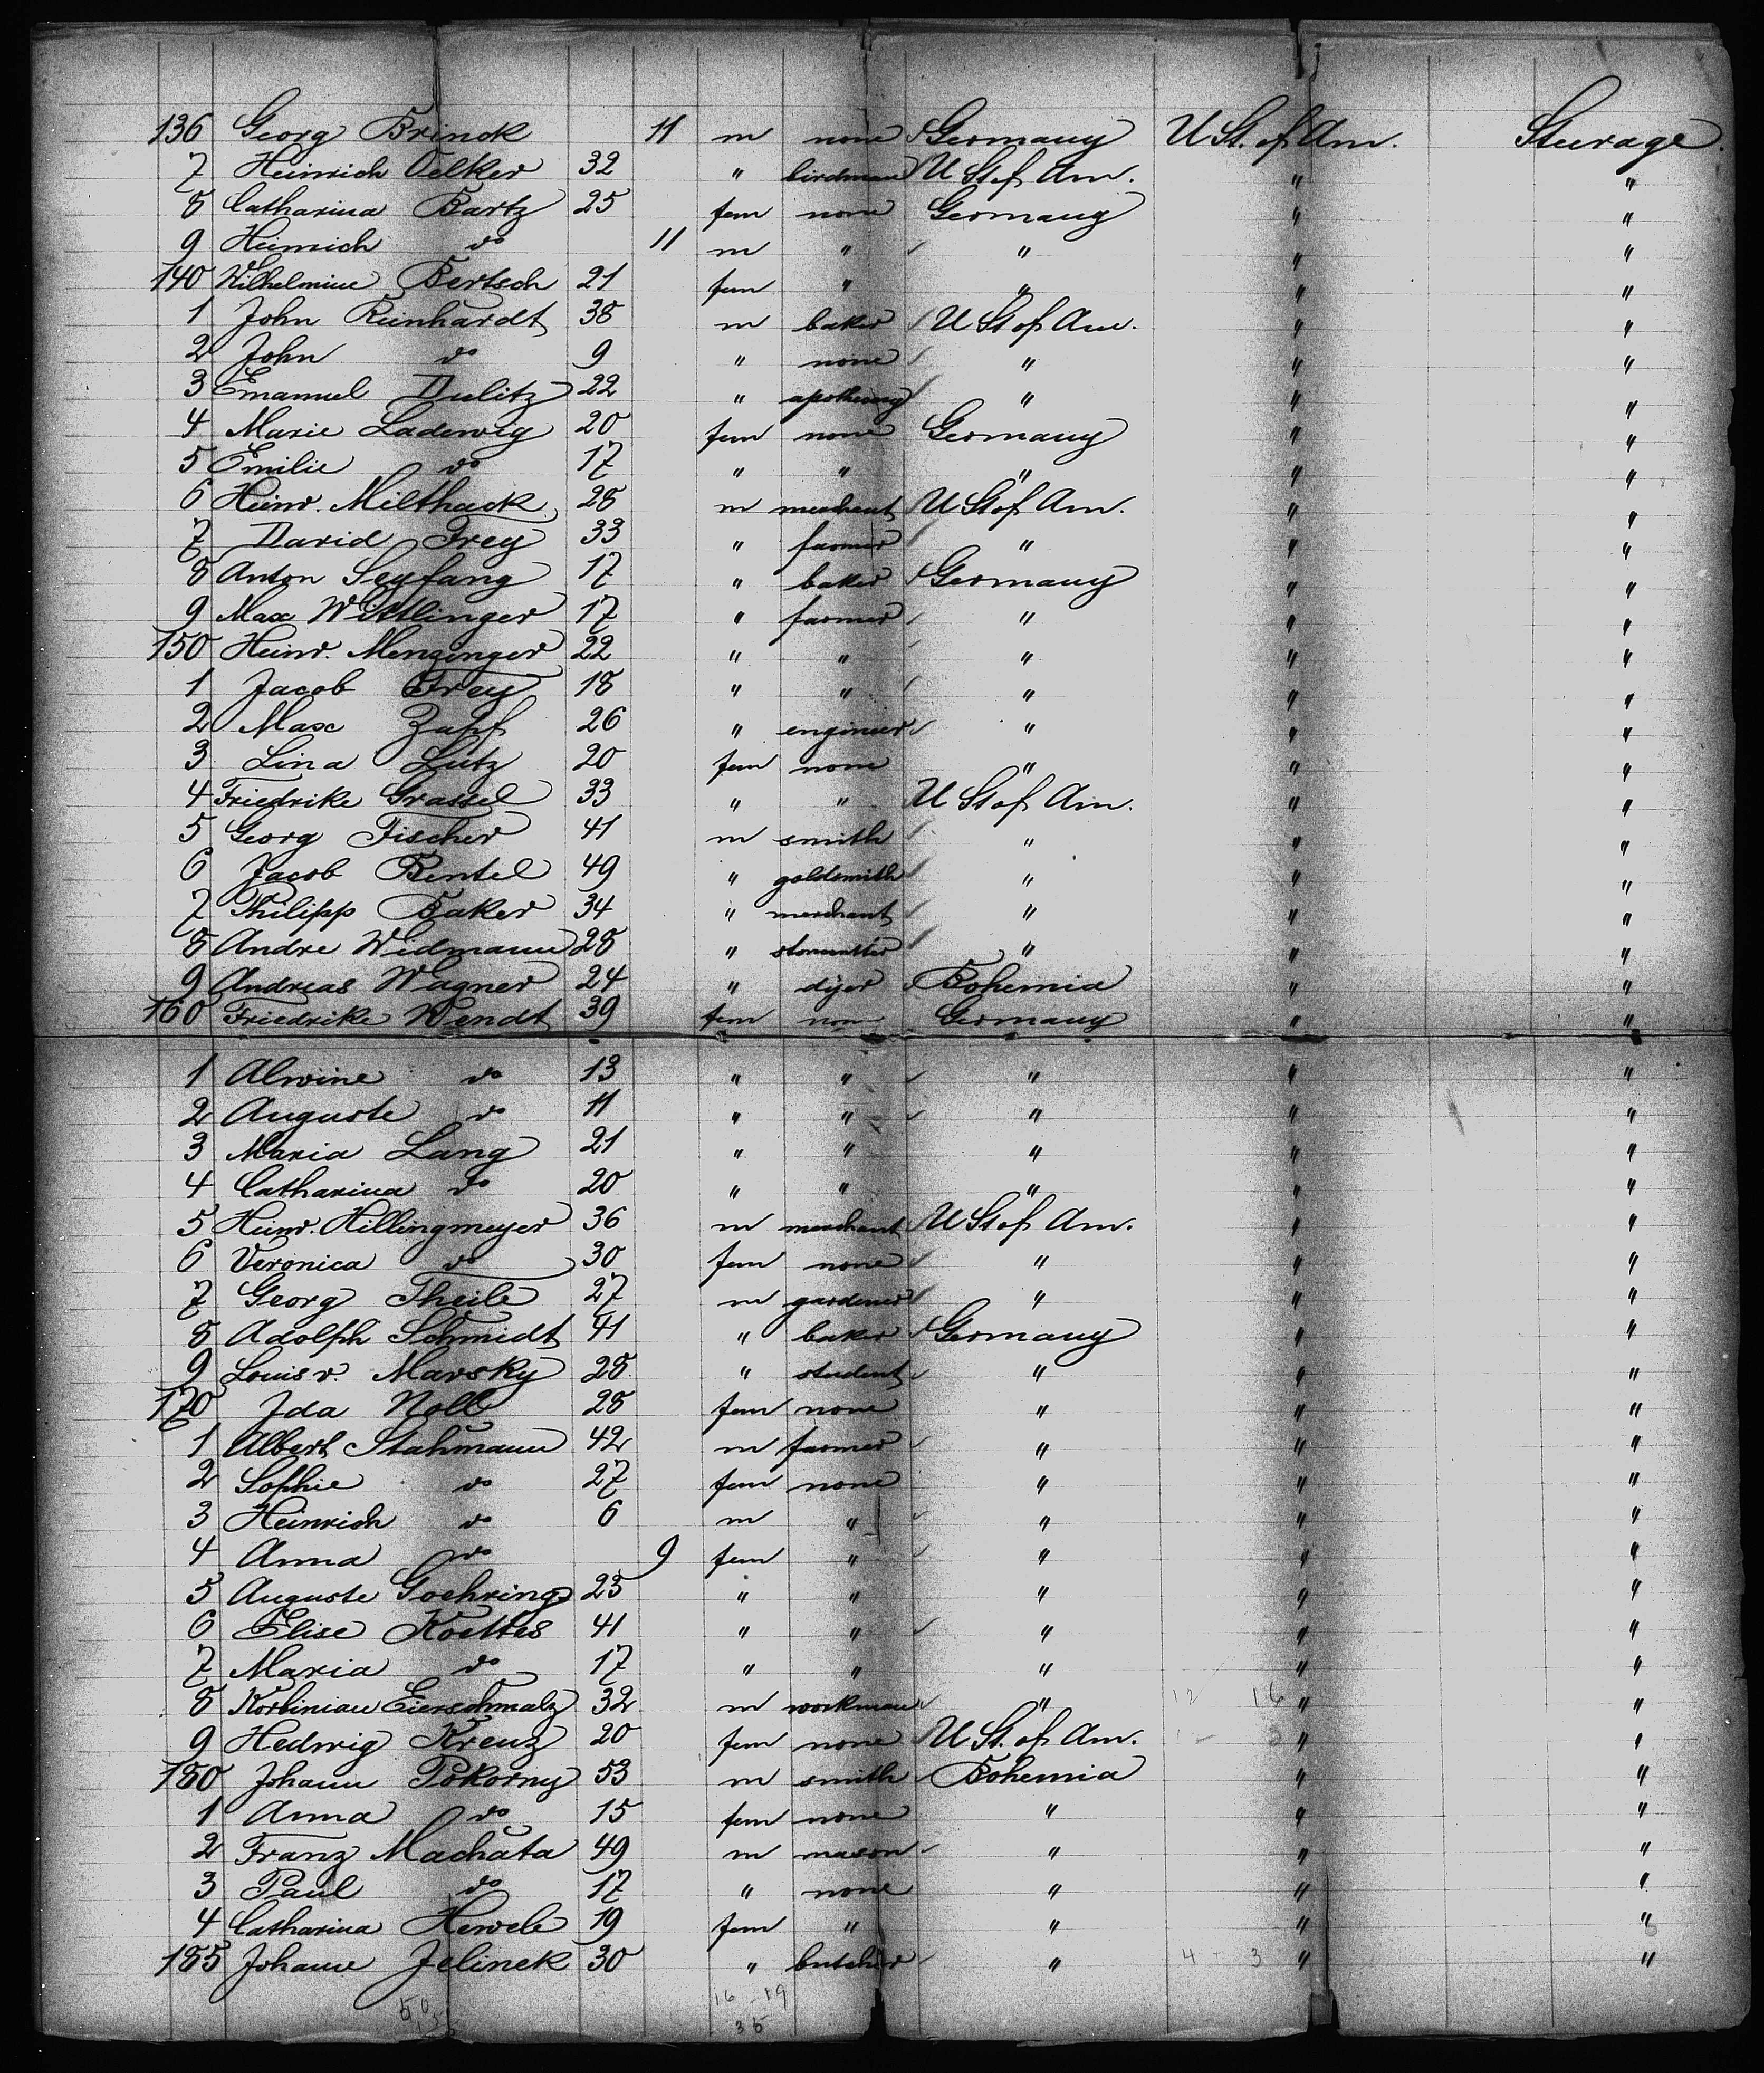 136 Georg Brinck 11 m none Germany U St. of Am. Steerage.
7 Heinrich Oelker 32 " birdman U St of Am. " "
8 Catharina Bartz 25 fem none Germany " "
9 Heinrich do 11 m " " " "
140 Wilhelmine Bertsch 21 fem " " " "
1 John Reinhardt 38 m baker U St of Am. " "
2 John do 9 " none " " "
3 Emanuel Dulitz 22 " " " "
4 Marie Ladewig 20 fem none Germany " "
5 Emilie do 17 " " " " "
6 Heinr. Milthack 28 m merchant U St of Am. " "
7 David Frey 33 " farmer " " "
8 Anton Seyfang 17 " baker Germany " "
9 Max Wittlinger 17 " farmer " " "
150 Heinr. Menzinger 22 " " " " "
1 Jacob Frey 18 " " " " "
2 Max Zapf 26 " engineer " " "
3 Lina Lutz 20 fem none " " "
4 Friedrike Grassel 33 " " U St of Am. " "
5 Georg Fischer 41 m smith " " "
6 Jacob Bentel 49 " goldsmith " " "
7 Philipp Baker 34 " merchant " " "
8 Andre Widmann 28 " " " "
9 Andreas Wagner 24 " dyer Bohemia " "
160 Friedrike Wendt 39 fem none Germany " "
1 Alwine do 13 " " " " "
2 Auguste do 11 " " " " "
3 Maria Lang 21 " " " " "
4 Catharina do 20 " " " " "
5 Heinr. Hillingmeyer 36 m merchant U St of Am. " "
6 Veronica do 30 fem none " " "
7 Georg Theile 27 m gardener " " "
8 Adolph Schmidt 41 " baker Germany " "
9 Louis v. Marsky 28 " student " " "
170 Ida Noll 28 fem none " " "
1 Albert Stahmann 42 m farmer " " "
2 Sophie do 27 fem none " " "
3 Heinrich do 6 m " " " "
4 Anna do 9 fem " " " "
5 Auguste Goehring 23 " " " " "
6 Elise Koettes 41 " " " " "
7 Maria do 17 " " " " "
8 Korbinian Eierschmalz 32 m workman " 12 16 " "
9 Hedwig Kreuz 20 fem none U St. of Am. " "
180 Johann Pokorny 53 m smith Bohemia " "
1 Anna do 15 fem none " " "
2 Franz Machata 49 m mason " " "
3 Paul do 17 " none " " "
4 Catharina Hewele 19 fem " " " "
185 Johann Jelinek 30 " butcher " 4 - 3 " "
16 - 19
35